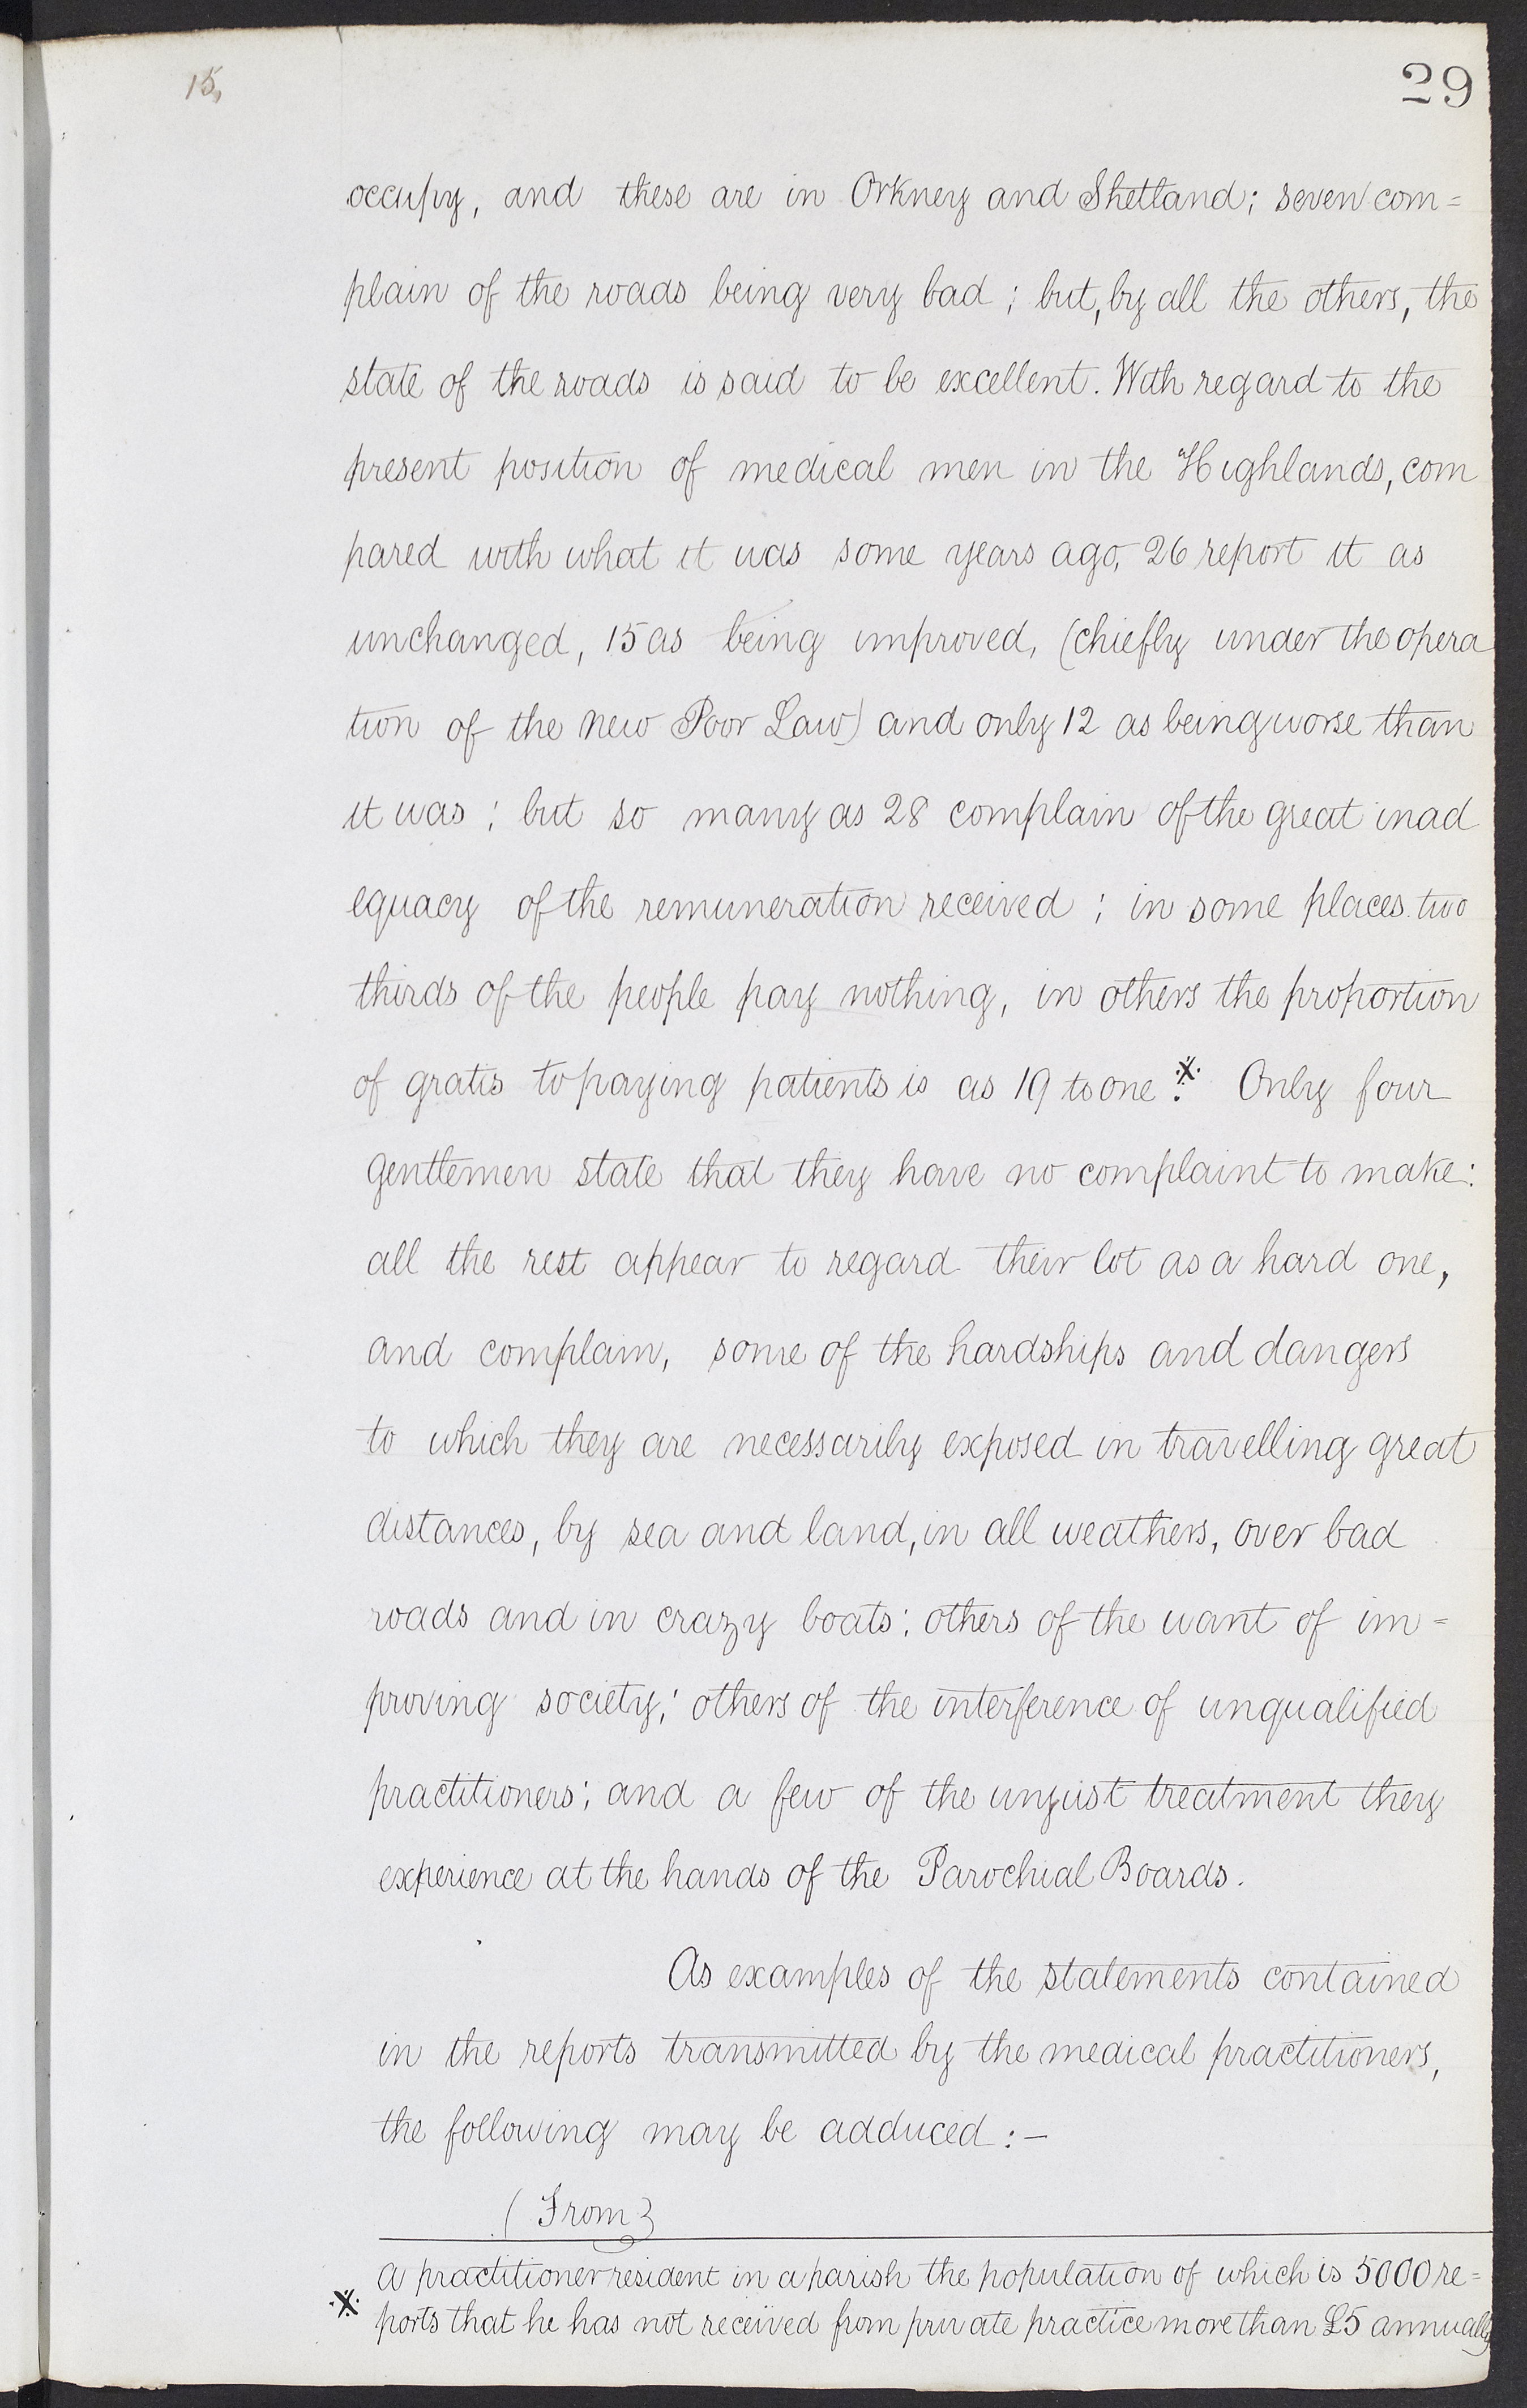 15,
29
occupy, and these are in Orkney and Shetland; seven com=
plain of the roads being very bad; but, by all the others, the
state of the roads is said to be excellent. With regard to the
present position of medical men in the Highlands, com
pared with what it was some years ago, 26 report it as
unchanged, 15 as being improved, (chiefly under the opera
tion of the new Poor Law) and only 12 as being worse than
it was; but so many as 28 complain of the great inad
equacy of the remuneration received; in some places two
thirds of the people pay nothing, in others the proportion
of gratis to paying patients is as 19 to one.※ Only four
gentlemen state that they have no complaint to make:
all the rest appear to regard their lot as a hard one,
and complain, some of the hardships and dangers
to which they are necessarily exposed in travelling great
distances, by sea and land, in all weathers, over bad
roads and in crazy boats; others of the want of im=
proving society; others of the interference of unqualified
practitioners; and a few of the unjust treatment they
experience at the hands of the Parochial Boards.
As examples of the statements contained
in the reports transmitted by the medical practitioners,
the following may be adduced:—
(From)
※ A practitioner resident in a parish the population of which is 5000 re=
ports that he has not received from private practice more than £5 annually